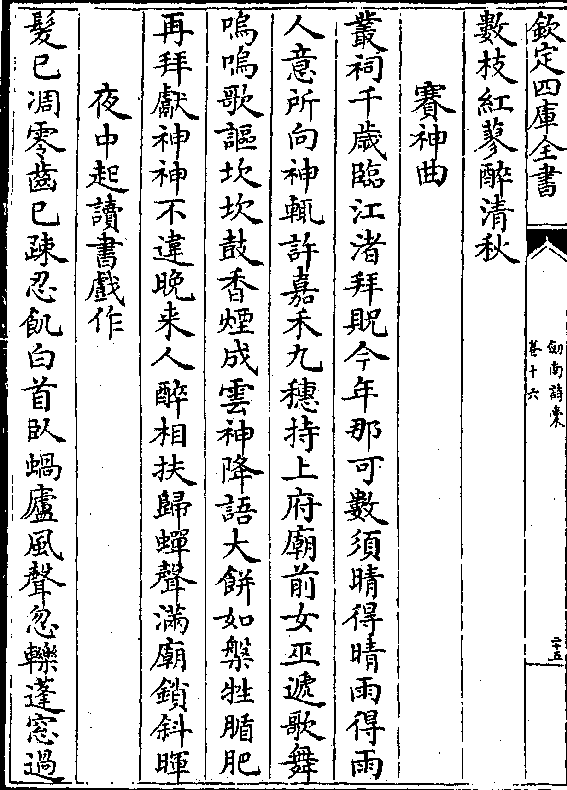 欽定四庫全書
劒南詩稾
卷十六
二十五
數枝紅蓼醉清秋
賽神曲
叢祠千歲臨江渚拜貺今年那可數須晴得晴雨得雨
人意所向神輒許嘉禾九穗持上府廟前女巫遞歌舞
嗚嗚歌謳坎坎鼓香煙成雲神降語大餅如槃牲腯肥
再拜獻神神不違晚来人醉相扶歸蟬聲滿廟鎖斜暉
夜中起讀書戲作
髮已凋零齒已疎忍飢白首臥蝸廬風聲忽轢蓬窓過